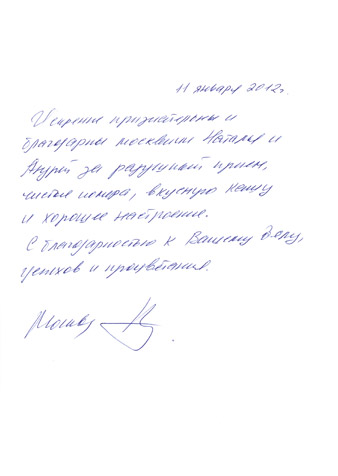 11 января 2012г
Искренне признательны и
благодарны москвичи Наталья и
Андрей за радушный прием,
чистые номера, вкусную кашу
и хорошее настроение.
С благодарностью к Вашему делу,
успехов и процветания.
Москва